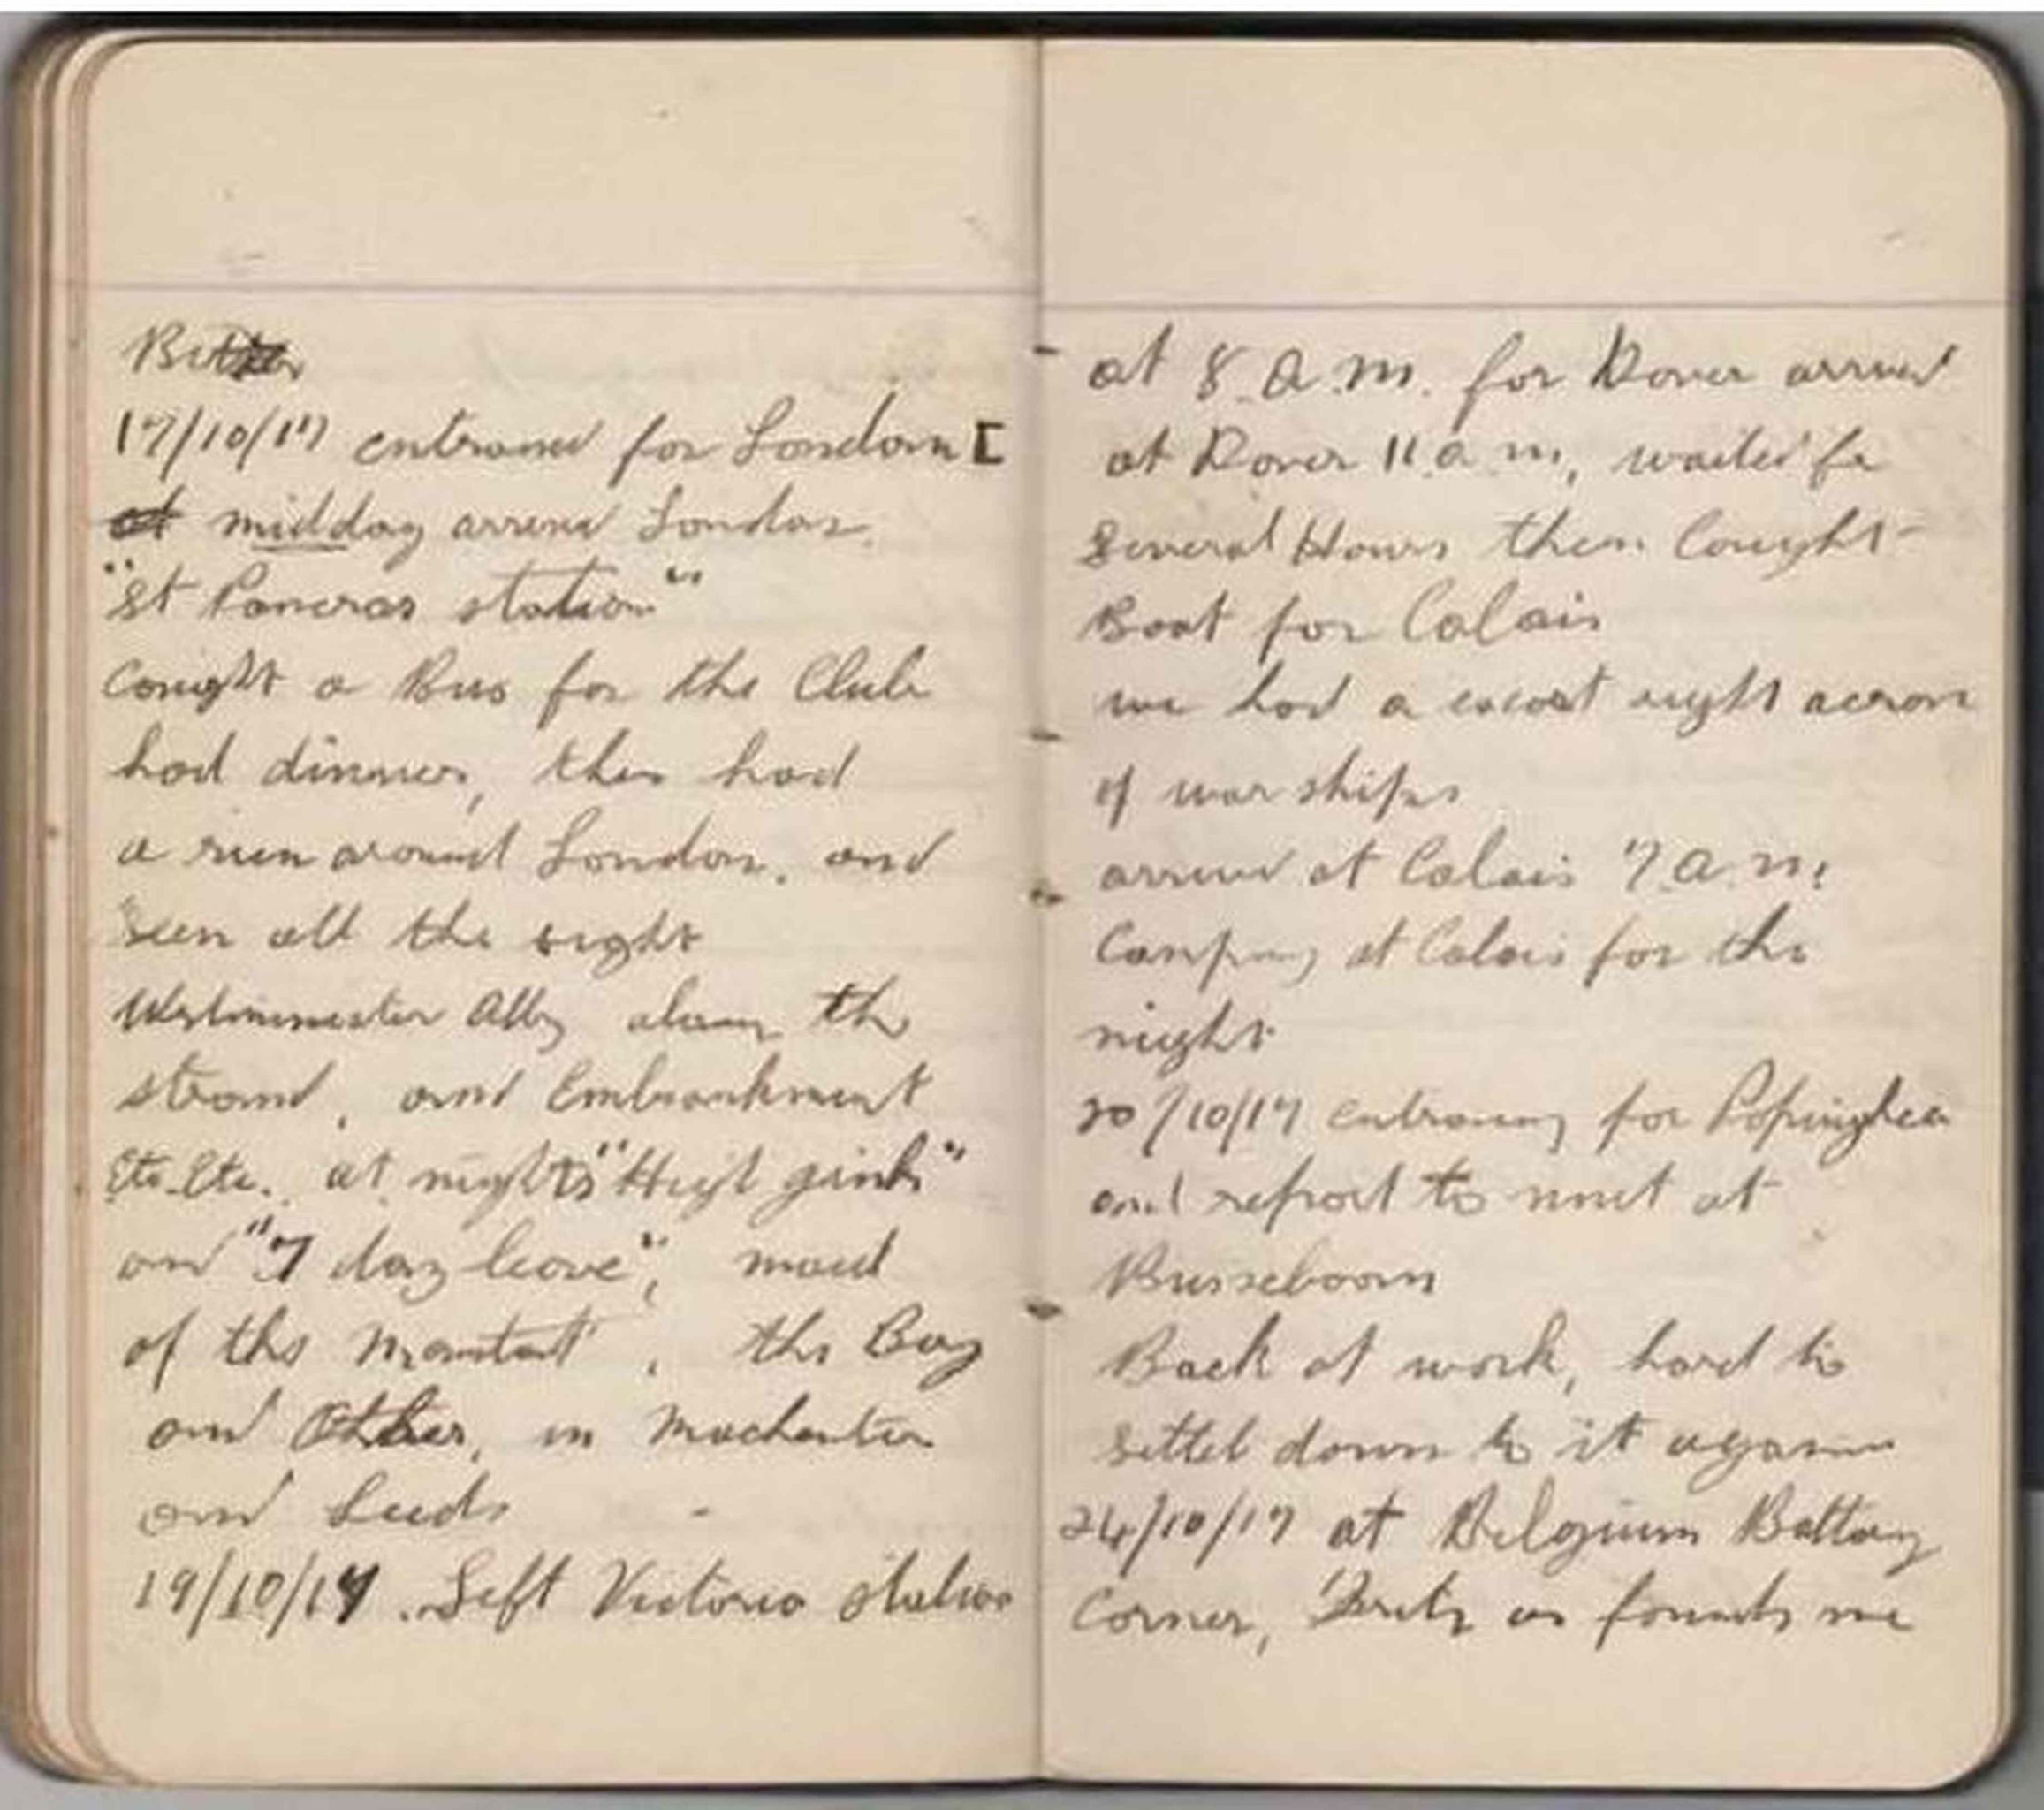 17/10/17 entrained for London [
at midday arrived London.
"St Pancras station"
Cought a Bus for the Club
had dinner, then had
a run around London, and
Seen all the sight
Westminnester Abby along the
strand, and Embrankment
Etc. Etc. at nights "High jinks"
and "7 day leave", maid
of the Mountant, the Boy
and Other, in Machenter
and Leeds
19/10/17. Left Victoria station
at 8 a.m. for Dover arrived
at Dover 11 a m, waited for
Several Hours then Cought
Boat for Calais
we had a escort right across
of war ships
arrived at Calais 7 a.m.
Camping at Calais for the
night
20/10/17 entraining for Popinghea
and report to unit at
Busseboom
Back at work, hard to
settel down to it again
24/10/17 at Belgium Battary
Corner, Fritz as founds me